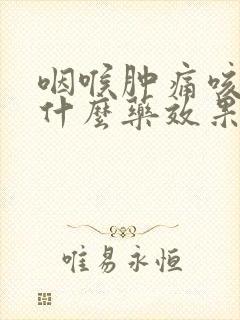 咽喉肿痛咳
什麼藥效果
唯易永恒